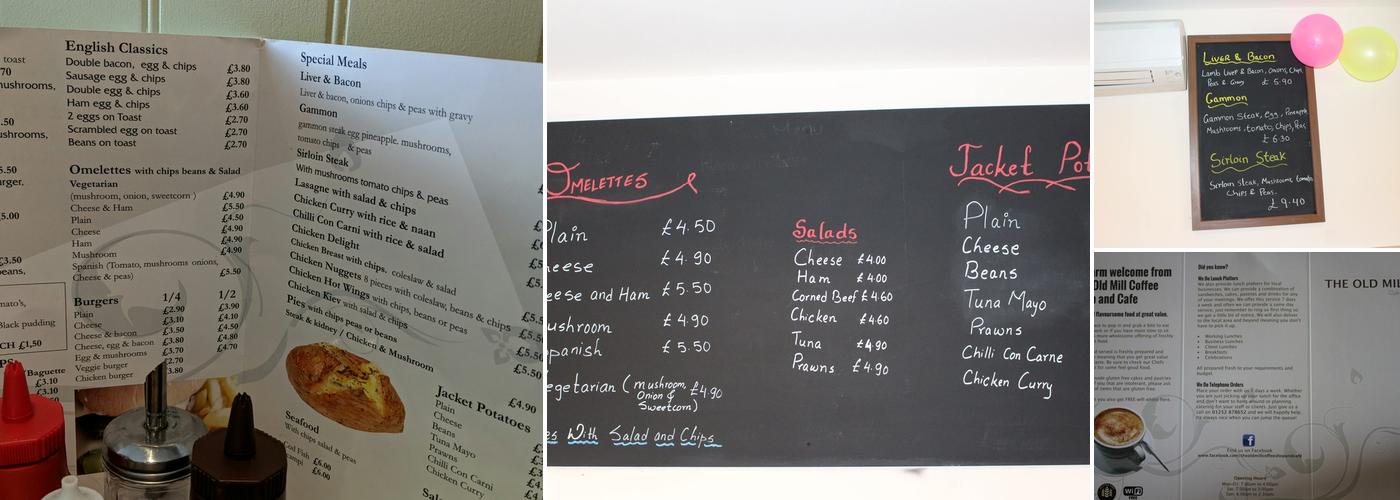 toast
70
mushrooms,
.50
ushrooms,
5.50
rger,
5.00
£3.50
beans,
mato's,
Black pudding
CH £1,50
Baguette
£3.10
£3.10
English Classics
Double bacon, egg & chips £3.80
Sausage egg & chips £3.80
Double egg & chips £3.60
Ham egg & chips £3.60
2 eggs on Toast £2.70
Scrambled egg on toast £2.70
Beans on toast £2.70
Omelettes with chips beans & Salad
Vegetarian
(mushroom, onion, sweetcorn ) £4.90
Cheese & Ham £5.50
Plain £4.50
Cheese £4.90
Ham £4.90
Mushroom £4.90
Spanish (Tomato, mushrooms onions,
Cheese & peas) £5.50
Burgers 1/4 1/2
Plain £2.90 £3.90
Cheese £3.10 £4.10
Cheese & bacon £3.50 £4.50
Cheese, egg & bacon £3.80 £4.80
Egg & mushrooms £3.70 £4.70
Veggie burger £2.70
Chicken burger 3.80
Special Meals
Liver & Bacon
Liver & bacon, onions chips & peas with gravy
Gammon
gammon steak egg pineapple, mushrooms,
tomato chips & peas
Sirloin Steak
With mushrooms tomato chips & peas
Lasagne with salad & chips
Chicken Curry with rice & naan
Chilli Con Carni with rice & salad
Chicken Delight
Chicken Breast with chips, coleslaw & salad
Chicken Nuggets 8 pieces with coleslaw, beans & chips
Chicken Hot Wings with chips, beans or peas
Chicken Kiev with salad & chips
Pies with chips peas or beans
Steak & kidney / Chicken & Mushroom
£5.50
£4.90
Jacket Potatoes
Plain
Cheese
Beans
Tuna Mayo
Prawns
Chilli Con Carni
Chicken Curry
Seafood
With chips salad & peas
Cod Fish £6.00
£6.00
Omelettes
Plain £4.50
heese £4.90
eese and Ham £5.50
ushroom £4.90
panish £5.50
egetarian (mushroom, £4.90
Onion &
Sweetcorn)
es With Salad and Chips
Salads
Cheese £4.00
Ham £4.00
Corned Beef £4.60
Chicken £4.60
Tuna £4.90
Prawns £4.90
Jacket Pot
Plain
Cheese
Beans
Tuna Mayo
Prawns
Chilli Con Carne
Chicken Curry
Liver & Bacon
Lamb Liver & Bacon, Onions, Chips,
Peas & Gravy £5.90
Gammon
Gammon Steak, Egg, Pineapple
Mushrooms, tomato, Chips, Peas
£6.30
Sirloin Steak
Sirloin Steak, Mushrooms, tomato
Chips & Peas.
£9.40
rm welcome from
Old Mill Coffee
p and Cafe
Did you know?
We Do Lunch Platters
We also provide lunch platters for local
businesses. We can provide a combination of
sandwiches, cakes, pastries and drinks for any
of your meetings. We offer this service 7 days
Working Lunches
Business Lunches
Client Lunches
Breakfasts
Celebrations
All prepared fresh to your requirements and
budget.
We Do Telephone Orders
call on 01252 878652 and we will happily help.
Find us on Facebook
Opening Hours
WiFi
THE OLD MIL